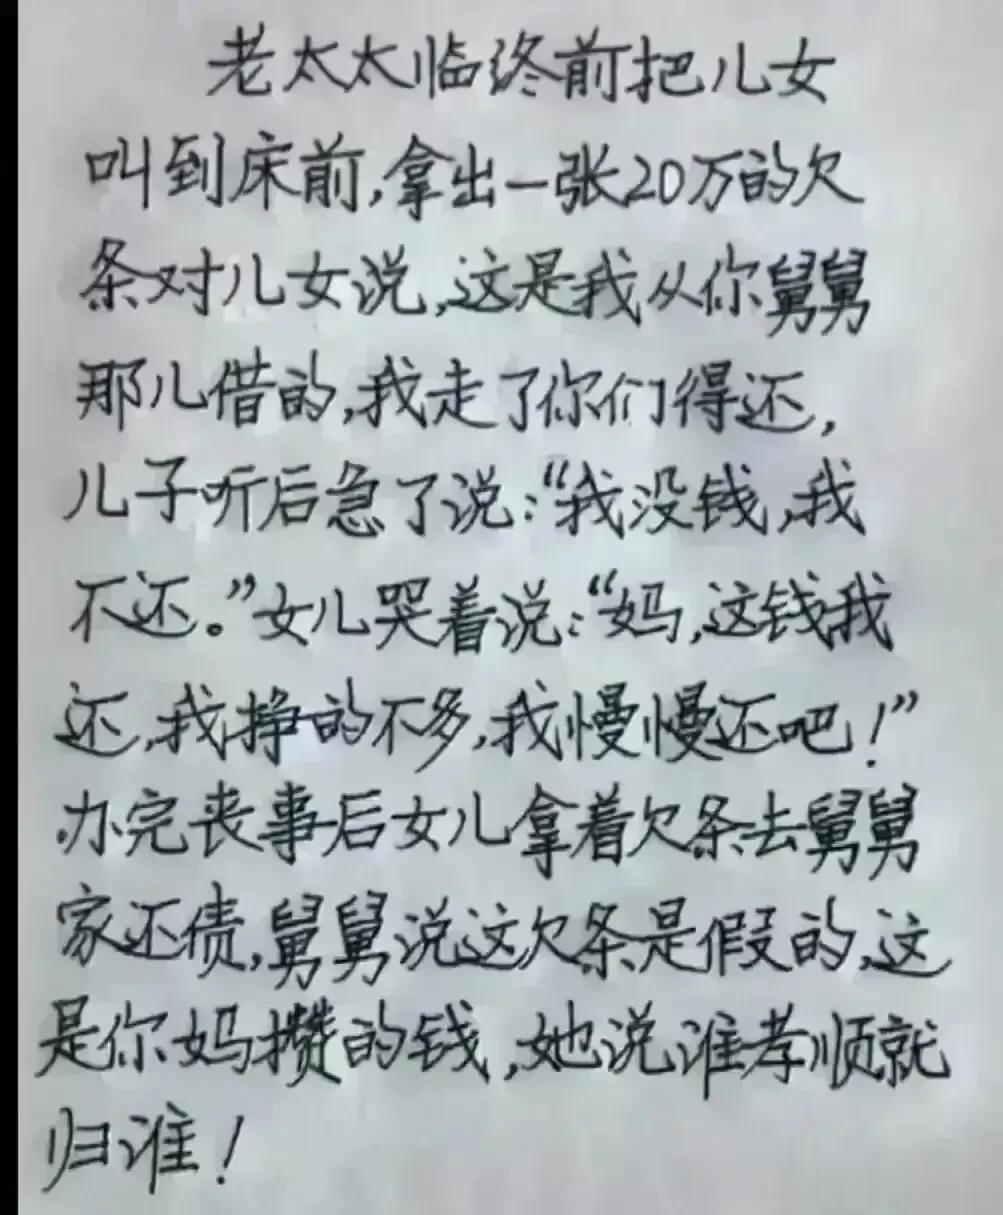 老太太临终前把儿女
叫到床前,拿出一张20万的欠
条对儿女说,这是我从你舅舅
那儿借的,我走了你们得还,
儿子听后急了说:“我没钱,我
不还。”女儿哭着说:“妈,这钱我
还,我挣的不多,我慢慢还吧!”
办完丧事后女儿拿着欠条去舅舅
家还债,舅舅说这欠条是假的,这
是你妈攒的钱,她说谁孝顺就
归谁!